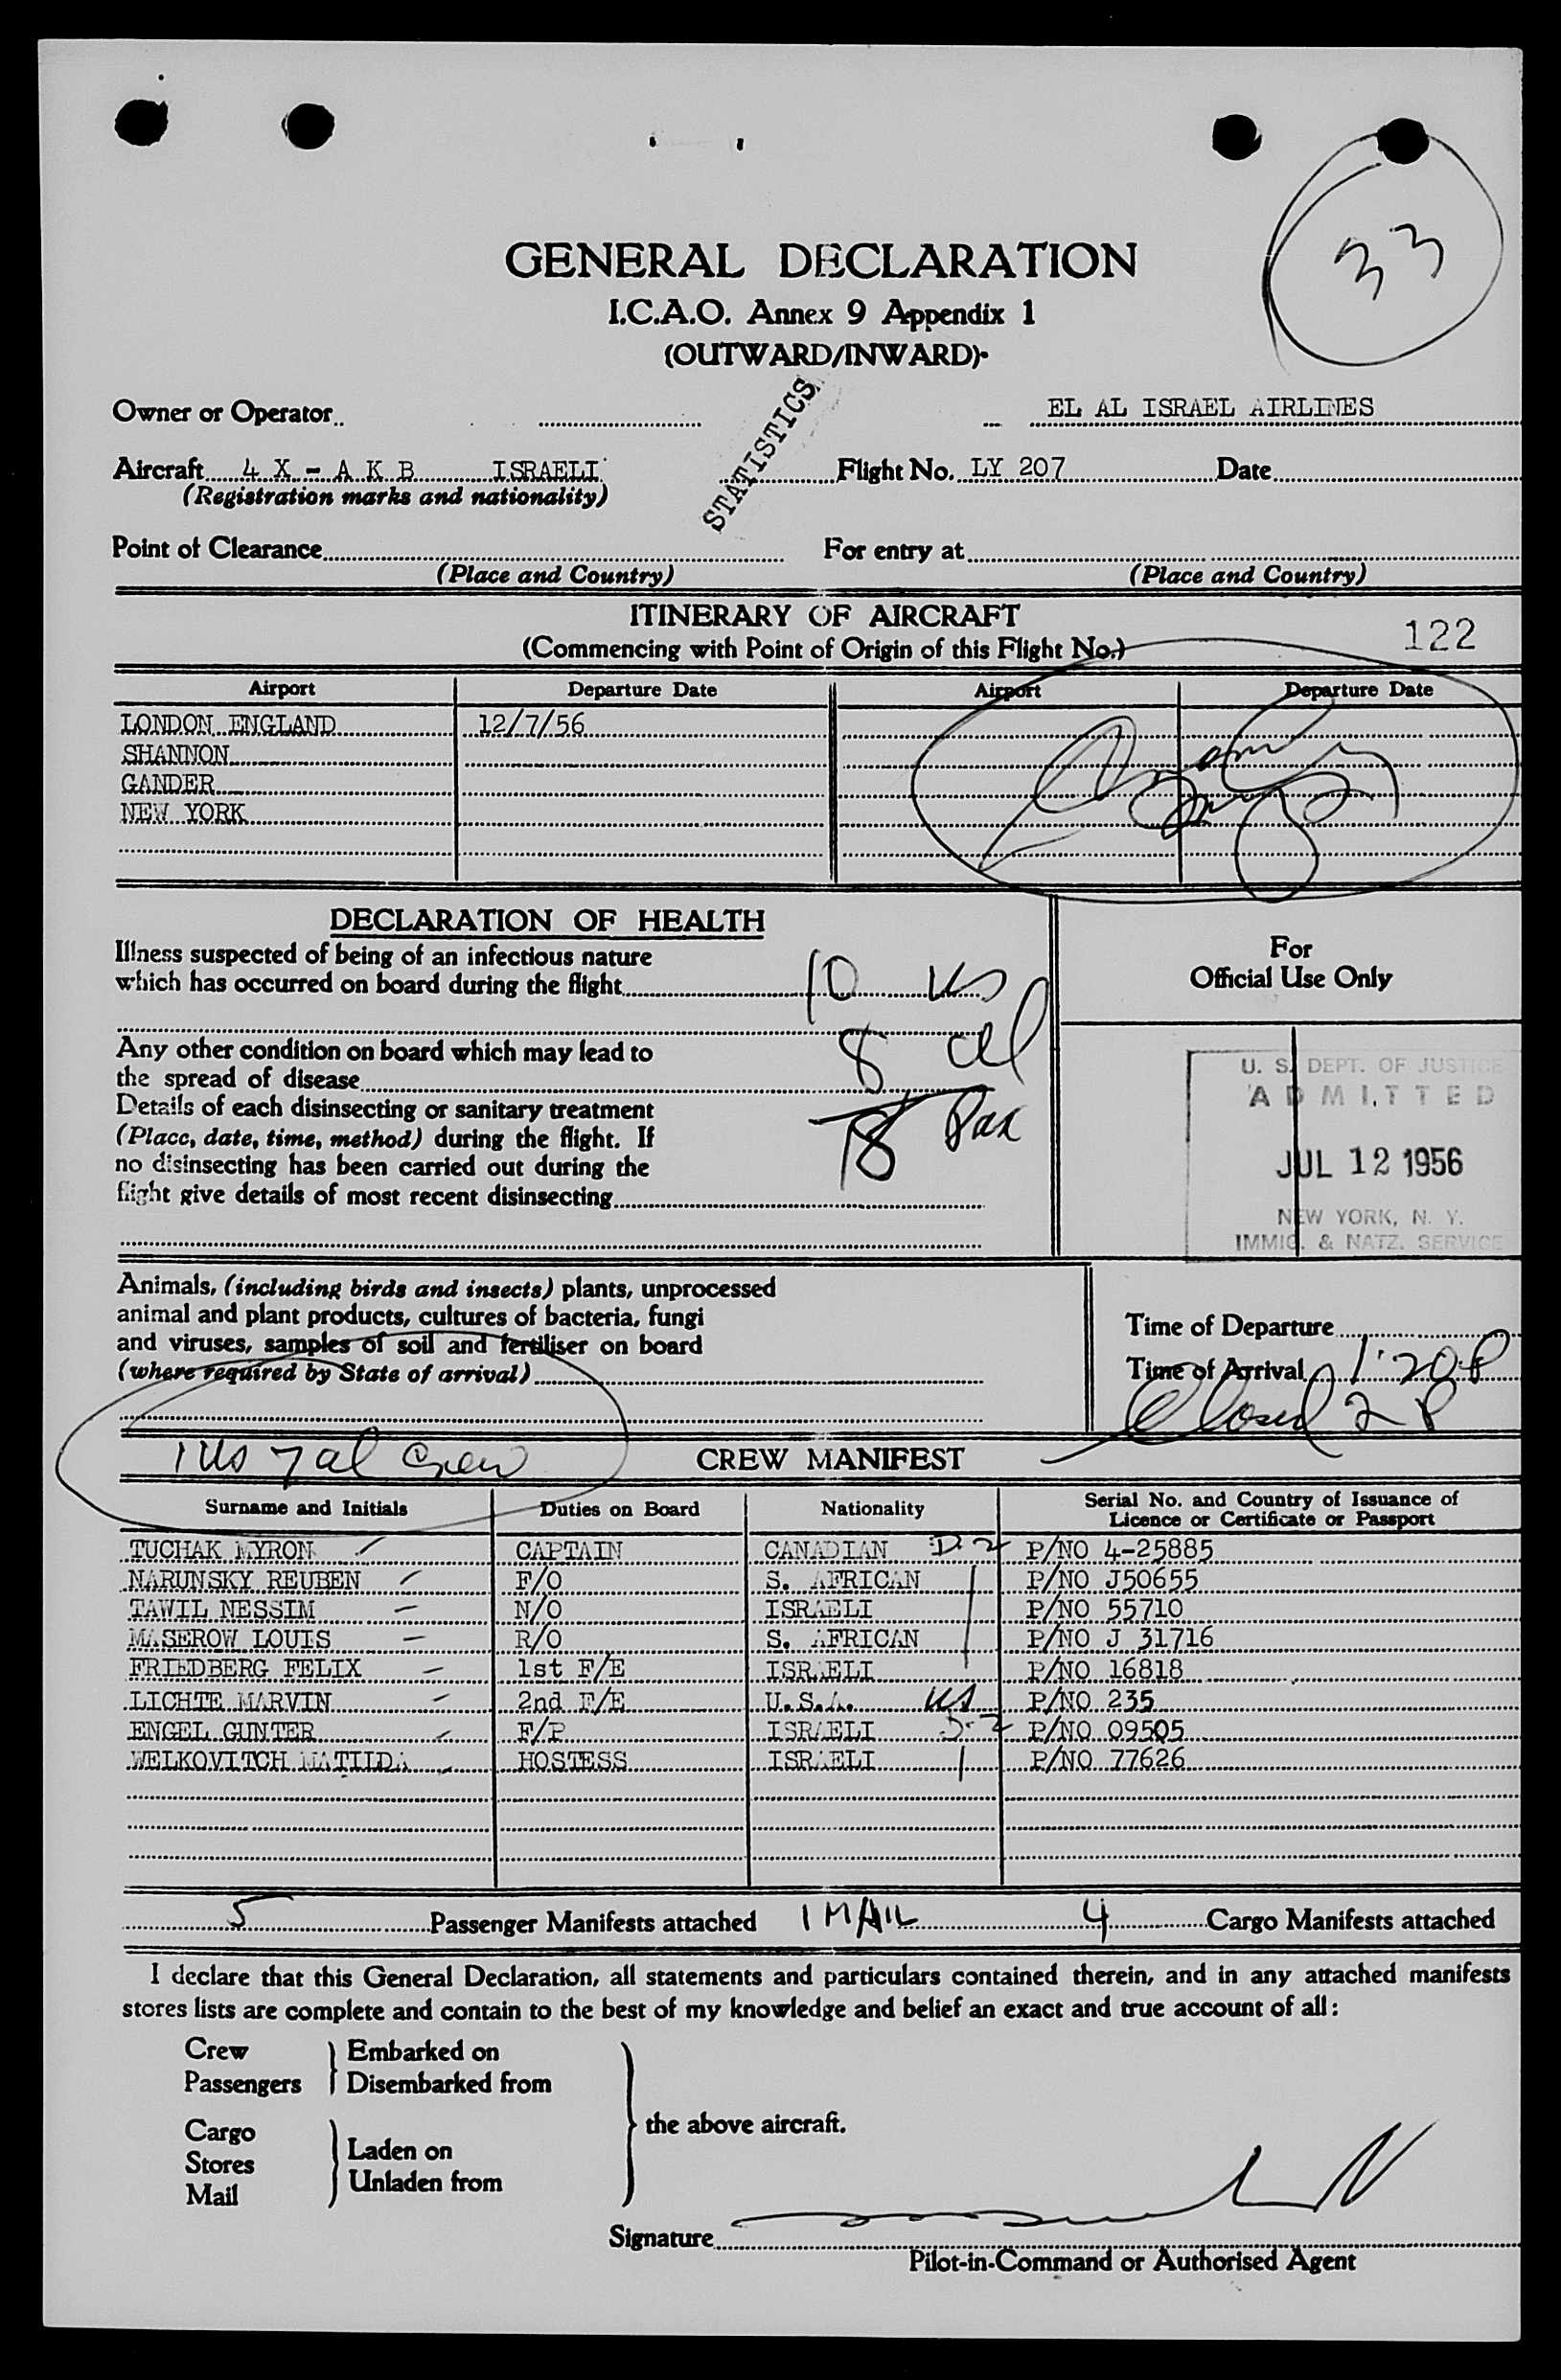 33
GENERAL DECLARATION
I.C.A.O. Annex 9 Appendix 1
(OUTWARD/INWARD)
STATISTICS
Owner or Operator EL AL ISRAEL AIRLINES
Aircraft 4 X - A K B ISRAELI Flight No. LY 207 Date
(Registration marks and nationality)
Point of Clearance For entry at
(Place and Country) (Place and Country)
ITINERARY OF AIRCRAFT
(Commencing with Point of Origin of this Flight No.) 122
Airport Departure Date Airport Departure Date
LONDON ENGLAND 12/7/56
SHANNON
GANDER
NEW YORK
DECLARATION OF HEALTH
Illness suspected of being of an infectious nature
which has occurred on board during the flight 10 US
Any other condition on board which may lead to 8 al
the spread of disease
Details of each disinsecting or sanitary treatment
(Place, date, time, method) during the flight. If 18 Pax
no disinsecting has been carried out during the
flight give details of most recent disinsecting
For
Official Use Only
U. S. DEPT. OF JUSTICE
ADMITTED
JUL 12 1956
NEW YORK, N. Y.
IMMIG. & NATZ. SERVICE
Animals, (including birds and insects) plants, unprocessed
animal and plant products, cultures of bacteria, fungi
and viruses, samples of soil and fertiliser on board
(where required by State of arrival)
Time of Departure
Time of Arrival 1:20P
Closed 2 P
1 US 7 al Crew
CREW MANIFEST
Surname and Initials Duties on Board Nationality Serial No. and Country of Issuance of
Licence or Certificate or Passport
TUCHAK MYRON CAPTAIN CANADIAN D-2 P/NO 4-25885
NARUNSKY REUBEN F/O S. AFRICAN P/NO J50655
TAWIL NESSIM N/O ISRAELI P/NO 55710
MASEROW LOUIS R/O S. AFRICAN P/NO J 31716
FRIEDBERG FELIX 1st F/E ISRAELI P/NO 16818
LICHTE MARVIN 2nd F/E U.S.A. US P/NO 235
ENGEL GUNTER F/P ISRAELI D-2 P/NO 09505
WELKOVITCH MATILDA HOSTESS ISRAELI P/NO 77626
5 Passenger Manifests attached 1 MAIL 4 Cargo Manifests attached
I declare that this General Declaration, all statements and particulars contained therein, and in any attached manifests
stores lists are complete and contain to the best of my knowledge and belief an exact and true account of all:
Crew Embarked on
Passengers Disembarked from
the above aircraft.
Cargo
Stores Laden on
Mail Unladen from
Signature
Pilot-in-Command or Authorised Agent